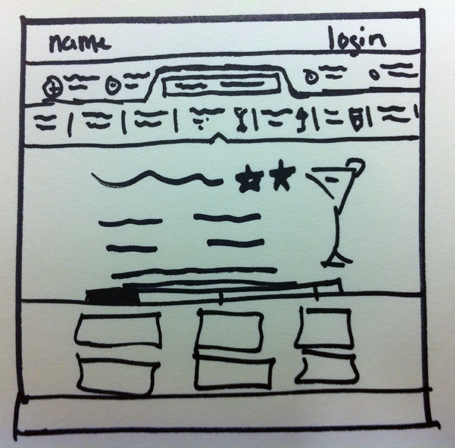 name
login